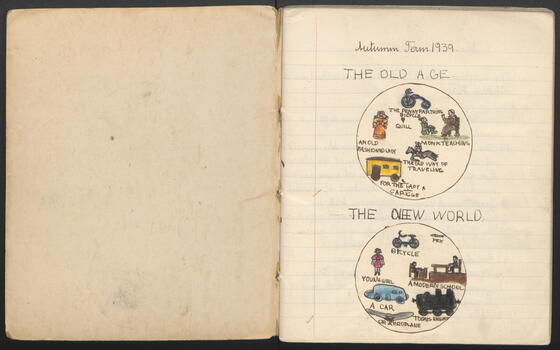 Autumn Term 1939.
THE OLD AGE
THE PENNY FARTHING
BICYCLE
QUILL
AN OLD
FASHIONED LADY
MONK TEACHING
THE OLD WAY OF
TRAVELING
FOR THE LADY A
THE NEW WORLD.
PEN
BICYCLE
YOUNG GIRL
A MODERN SCHOOL
A CAR
AN AEROPLANE